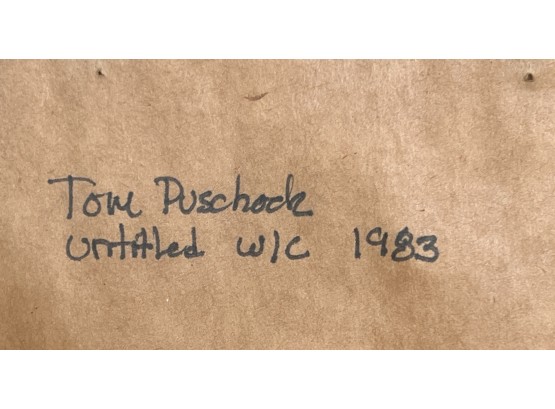 Tom Puschock
Untitled W/C 1983